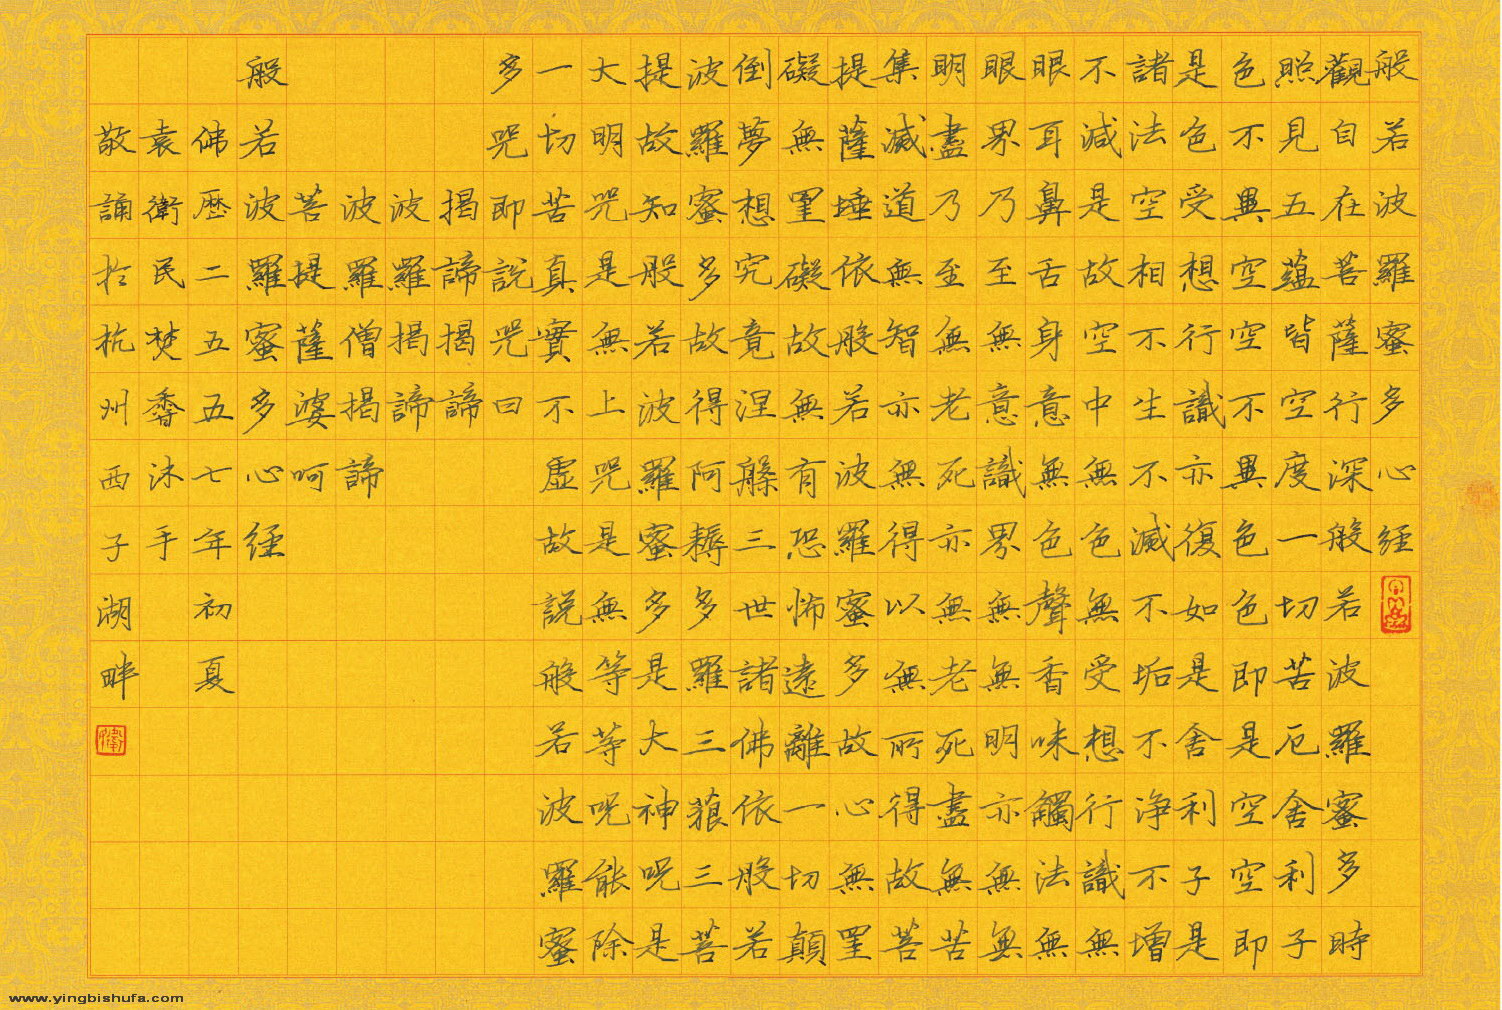 般若波羅蜜多心経
觀自在菩薩行深般若波羅蜜多時
照見五蘊皆空度一切苦厄舍利子
色不異空空不異色色即是空空即
是色受想行識亦復如是舍利子是
諸法空相不生不滅不垢不净不增
不減是故空中無色無受想行識無
眼耳鼻舌身意無色聲香味觸法無
眼界乃至無意識界無無明亦無無
明盡乃至無老死亦無老死盡無苦
集滅道無智亦無得以無所得故菩
提薩埵依般若波羅蜜多故心無罣
礙無罣礙故無有恐怖遠離一切顛
倒夢想究竟涅槃三世諸佛依般若
波羅蜜多故得阿耨多羅三藐三菩
提故知般若波羅蜜多是大神咒是
大明咒是無上咒是無等等咒能除
一切苦真實不虛故說般若波羅蜜
多咒即說咒曰
揭諦揭諦
波羅揭諦
波羅僧揭諦
菩提薩婆呵
般若波羅蜜多心経
佛厯二五五七年初夏
袁衛民焚香沐手
敬誦於杭州西子湖畔
www.yingbishufa.com